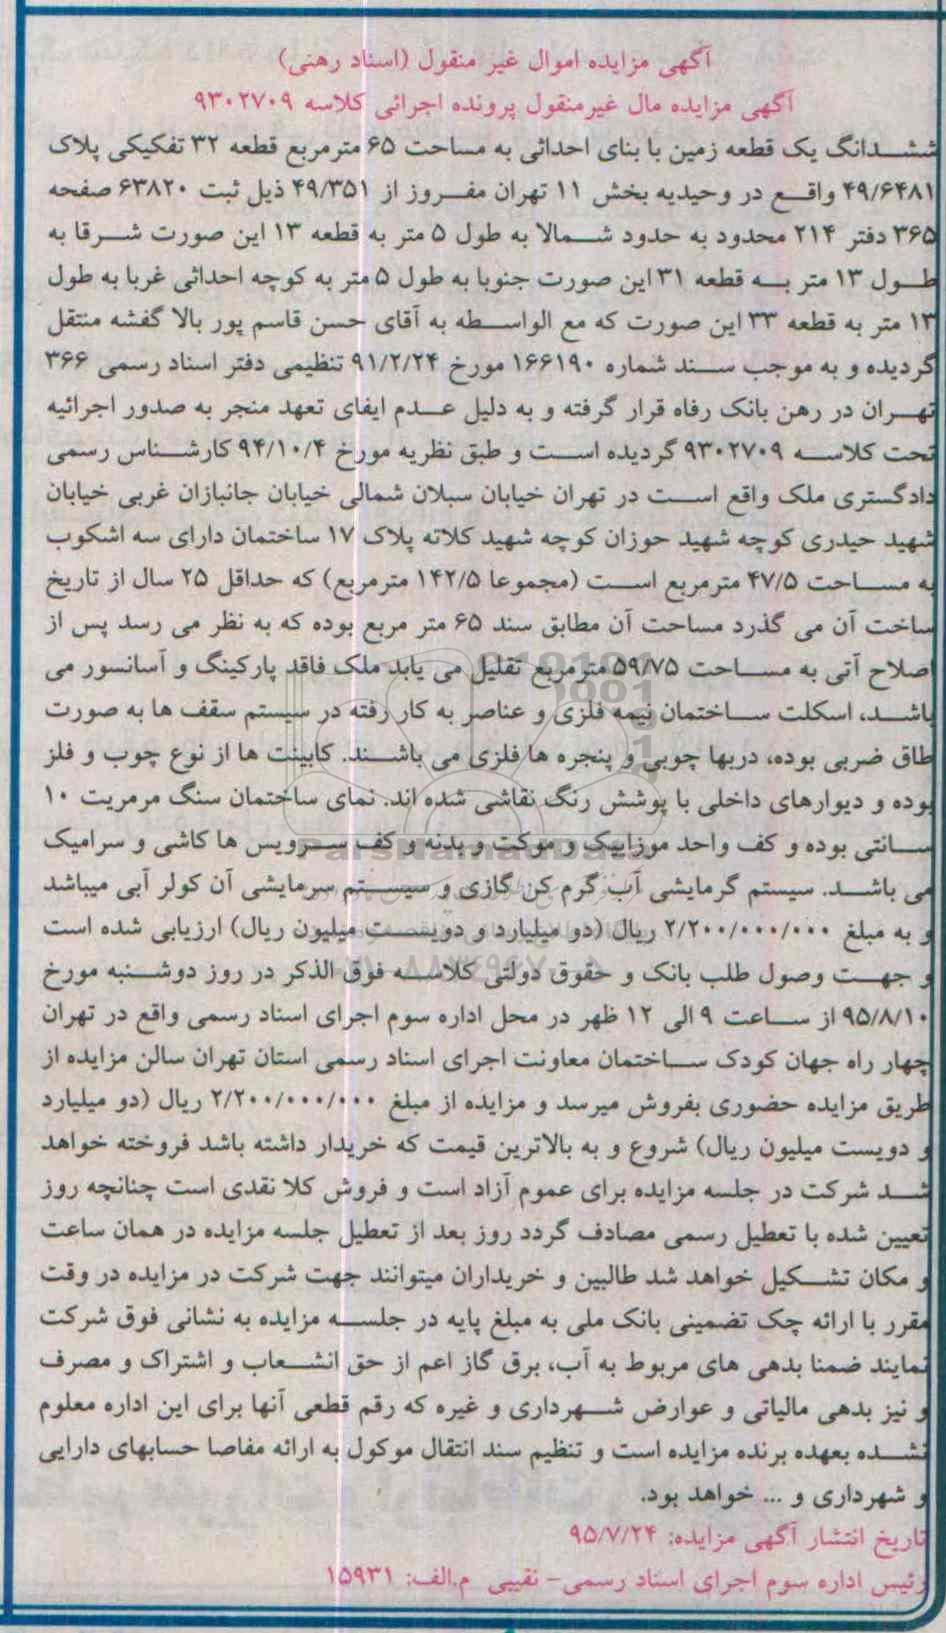 آگهی مزایده اموال غیر منقول (اسناد رهنی)
آگهی مزایده مال غیرمنقول پرونده اجرائی کلاسه ۹۳۰۲۷۰۹
ششدانگ یک قطعه زمین با بنای احداثی به مساحت ۶۵ مترمربع قطعه ۳۲ تفکیکی پلاک
۴۹/۶۴۸۱ واقع در وحیدیه بخش ۱۱ تهران مفروز از ۴۹/۳۵۱ ذیل ثبت ۶۳۸۲۰ صفحه
۳۶۵ دفتر ۲۱۴ محدود به حدود شمالا به طول ۵ متر به قطعه ۱۳ این صورت شرقا به
طول ۱۳ متر به قطعه ۳۱ این صورت جنوبا به طول ۵ متر به کوچه احداثی غربا به طول
۱۳ متر به قطعه ۳۳ این صورت که مع الواسطه به آقای حسن قاسم پور بالا گفشه منتقل
گردیده و به موجب سند شماره ۱۶۶۱۹۰ مورخ ۹۱/۲/۲۴ تنظیمی دفتر اسناد رسمی ۳۶۶
تهران در رهن بانک رفاه قرار گرفته و به دلیل عدم ایفای تعهد منجر به صدور اجرائیه
تحت کلاسه ۹۳۰۲۷۰۹ گردیده است و طبق نظریه مورخ ۹۴/۱۰/۴ کارشناس رسمی
دادگستری ملک واقع است در تهران خیابان سبلان شمالی خیابان جانبازان غربی خیابان
شهید حیدری کوچه شهید حوزان کوچه شهید کلاته پلاک ۱۷ ساختمان دارای سه اشکوب
به مساحت ۴۷/۵ مترمربع است (مجموعا ۱۴۲/۵ مترمربع) که حداقل ۲۵ سال از تاریخ
ساخت آن می گذرد مساحت آن مطابق سند ۶۵ متر مربع بوده که به نظر می رسد پس از
اصلاح آتی به مساحت ۵۹/۷۵ مترمربع تقلیل می یابد ملک فاقد پارکینگ و آسانسور می
باشد، اسکلت ساختمان نیمه فلزی و عناصر به کار رفته در سیستم سقف ها به صورت
طاق ضربی بوده، دربها چوبی و پنجره ها فلزی می باشند. کابینت ها از نوع چوب و فلز
بوده و دیوارهای داخلی با پوشش رنگ نقاشی شده اند. نمای ساختمان سنگ مرمریت ۱۰
سانتی بوده و کف واحد موزاییک و موکت و بدنه و کف سرویس ها کاشی و سرامیک
می باشد. سیستم گرمایشی آب گرم کن گازی و سیستم سرمایشی آن کولر آبی میباشد
و به مبلغ ۲/۲۰۰/۰۰۰/۰۰۰ ریال (دو میلیارد و دویست میلیون ریال) ارزیابی شده است
و جهت وصول طلب بانک و حقوق دولتی کلاسه فوق الذکر در روز دوشنبه مورخ
۹۵/۸/۱۰ از ساعت ۹ الی ۱۲ ظهر در محل اداره سوم اجرای اسناد رسمی واقع در تهران
چهار راه جهان کودک ساختمان معاونت اجرای اسناد رسمی استان تهران سالن مزایده از
طریق مزایده حضوری بفروش میرسد و مزایده از مبلغ ۲/۲۰۰/۰۰۰/۰۰۰ ریال (دو میلیارد
و دویست میلیون ریال) شروع و به بالاترین قیمت که خریدار داشته باشد فروخته خواهد
شد شرکت در جلسه مزایده برای عموم آزاد است و فروش کلا نقدی است چنانچه روز
تعیین شده با تعطیل رسمی مصادف گردد روز بعد از تعطیل جلسه مزایده در همان ساعت
و مکان تشکیل خواهد شد طالبین و خریداران میتوانند جهت شرکت در مزایده در وقت
مقرر با ارائه چک تضمینی بانک ملی به مبلغ پایه در جلسه مزایده به نشانی فوق شرکت
نمایند ضمنا بدهی های مربوط به آب، برق گاز اعم از حق انشعاب و اشتراک و مصرف
و نیز بدهی مالیاتی و عوارض شهرداری و غیره که رقم قطعی آنها برای این اداره معلوم
نشده بعهده برنده مزایده است و تنظیم سند انتقال موکول به ارائه مفاصا حسابهای دارایی
و شهرداری و ... خواهد بود.
تاریخ انتشار آگهی مزایده: ۹۵/۷/۲۴
رئیس اداره سوم اجرای اسناد رسمی- نقیبی م.الف: ۱۵۹۳۱